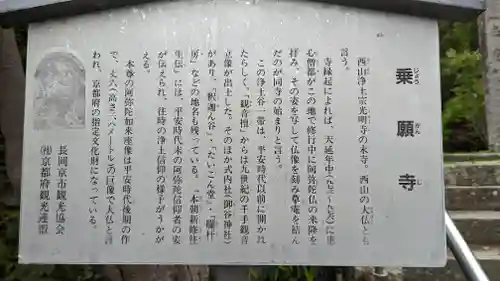 乗願寺
じょうがんじ
西山浄土宗光明寺の末寺。西山の大仏とも
言う。
寺縁起によれば、天延年中(九七三~九七五)に恵
心僧都がこの地で修行中に阿弥陀仏の来降を
拝み、その姿を写して仏像を刻み草庵を結ん
だのが同寺の始まりと言う。
この浄土谷一帯は、平安時代以前に開かれ
たらしく、「観音擅」からは九世紀の千手観音
立像が出土した。そのほか式内社(御谷神社)
があり、「釈迦ん谷」、「たいこん堂」、「欄杜
房」などの地名も残っている。「本朝新修往
生伝」には、平安時代末の阿弥陀信仰者の姿
が伝えられ、往時の浄土信仰の様子がうかが
える。
本尊の阿弥陀如来座像は平安時代後期の作
で、丈六(高さ二・八メートル)の巨像で大仏と言
われ、京都府の指定文化財になっている。
長岡京市観光協会
㈳京都府観光連盟